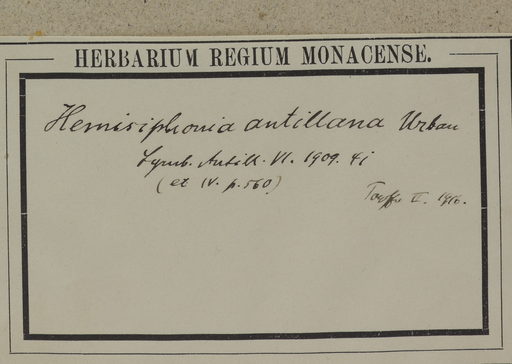 HERBARIUM REGIUM MONACENSE.
Hemisiphonia antillana Urban
Symb. Antill. VI. 1909. 41
(et IV. p. 560)
II. 1910.